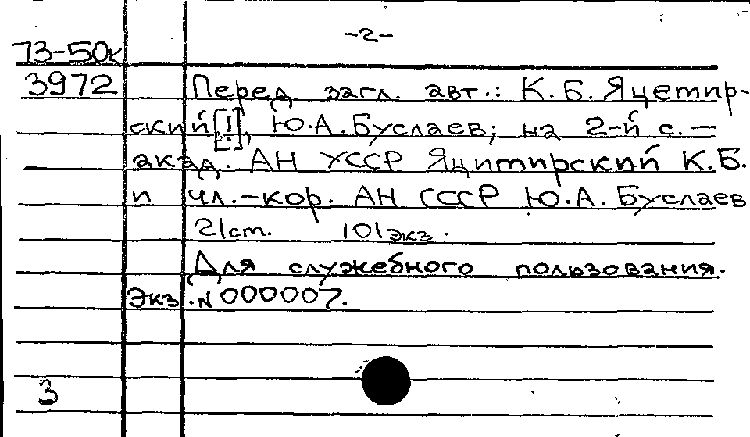 -2-
73-50к
3972 Перед загл. авт.: К.Б. Яцемир-
ский [!], Ю.А. Буслаев; на 2-й с. –
акад. АН УССР Яцимирский К.Б.
и чл.-кор. АН СССР Ю.А. Буслаев
21 cm. 101 экз.
Для служебного пользования.
Экз. № 000007.
3